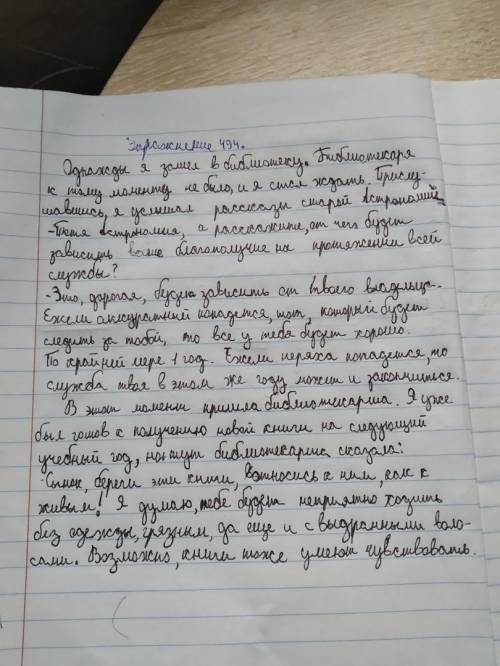 Упражнение 494.
Однажды я зашел в библиотеку. Библиотекаря
к тому моменту не было, и я стал ждать. Прислу-
шавшись, я услышал рассказы старой Астрономии
-Тетя Астрономия, а расскажите, от чего будет
зависить ваше благополучие на протяжении всей
службы?
-Это, дорогая, будет зависить от твоего владельца.
Ежели аккуратный попадется, тот, который будет
следить за тобой, то все у тебя будет хорошо.
По крайней мере 1 год. Ежели неряха попадется, то
служба твоя в этом же году может и закончиться.
В этот момент пришла библиотекарша. Я уже
был готов к получению новой книги на следующий
учебный год, но тут библиотекарша сказала:
-Сынок, береги эти книги, относись к ним, как к
живым! Я думаю, тебе будет неприятно ходить
без одежды, грязным, да еще и с выдранными воло-
сами. Возможно, книги тоже умеют чувствовать.